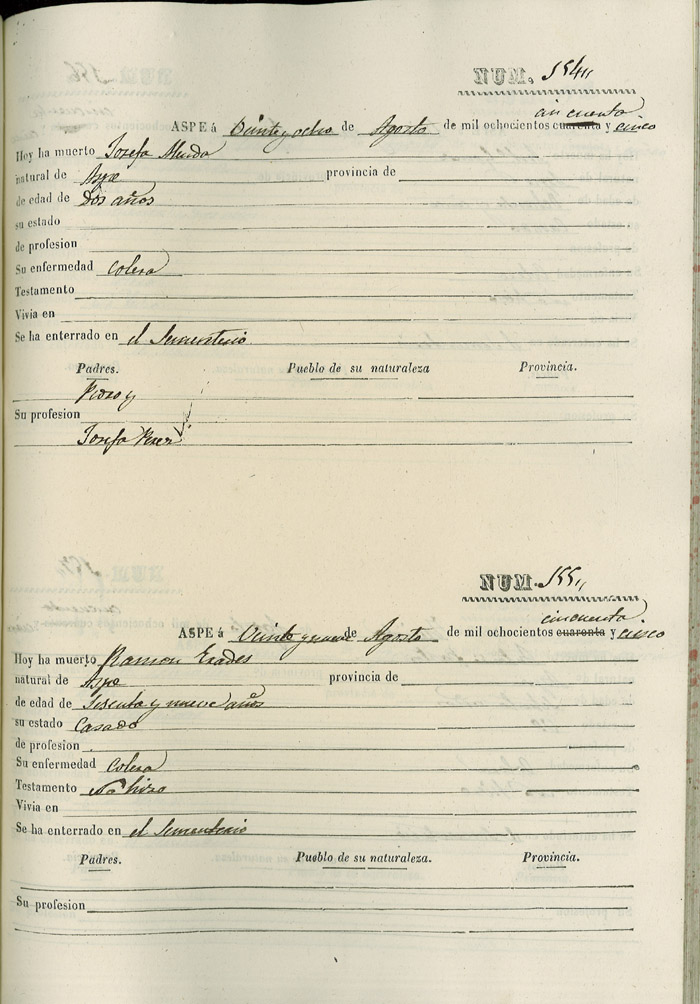 NUM. 154
cincuenta
ASPE á Veinte y ocho de Agosto de mil ochocientos cuarenta y cinco
Hoy ha muerto Josefa
natural de Aspe provincia de
de edad de Dos años
su estado
de profesion
Su enfermedad Colera
Testamento
Vivia en
Se ha enterrado en el Sementerio
Padres. Pueblo de su naturaleza Provincia.
Pedro y
Su profesion
Josefa Perez
NUM. 155
cincuenta
ASPE á Veinte y nueve de Agosto de mil ochocientos cuarenta y cinco
Hoy ha muerto Ramon Erades
natural de Aspe provincia de
de edad de Sesenta y nueve años
su estado Casado
de profesion
Su enfermedad Colera
Testamento No hizo
Vivia en
Se ha enterrado en el Sementerio
Padres. Pueblo de su naturaleza. Provincia.
Su profesion